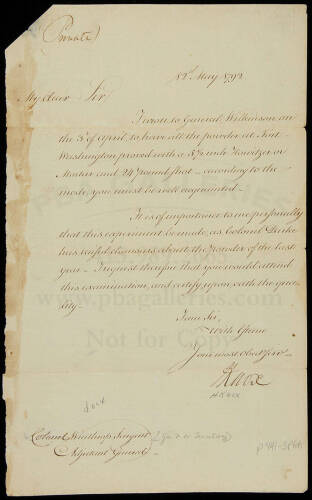 (Private)
8th May 1792
My dear Sir
I wrote to General Wilkinson on
the 3d of April, to have all the powder at Fort
Washington proved with a 5½ inch Howitzer or
Mortar and 24 pound shot — according to the
mode, you must be well acquainted —
It is of importance to me personally
that this experiment be made, as Colonel Duke
has raised clamours about the powder of the last
year — I request therefore that you would attend
this examination, and certify upon oath the qua
lity —
I am Sir,
With Esteem
Your most obed Serv
HKnox
H KNOX
Colonel Winthrop Sargent
Adjutant General
www.pbagalleries.com
Not for Copy